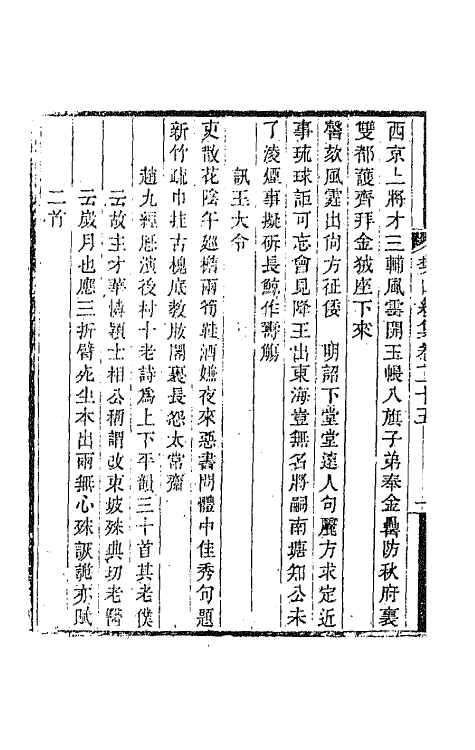 西京上將才三輔風雲開玉帳八旗子弟奉金罍防秋府裏
雙都護齊拜金狨座下來
謦欬風霆出尙方征倭　明詔下堂堂遠人句麗方求定近
事琉球詎可忘會見降王出東海豈無名將嗣南塘知公未
了淩煙事擬斫長鯨作壽觴
訊王大令
吏散花陰午遶檐兩筍鞋酒嫌夜來惡書問體中佳秀句題
新竹疏巾挂古槐底教肢閣裏長怨太常齋
趙九經厫演後村十老詩爲上下平韻三十首其老僕
云故主才華憐穎士相公稱謂改東坡殊典切老醫
云歲月也應三折臂死生本出兩無心殊詼詭亦賦
二首
集卷二十五